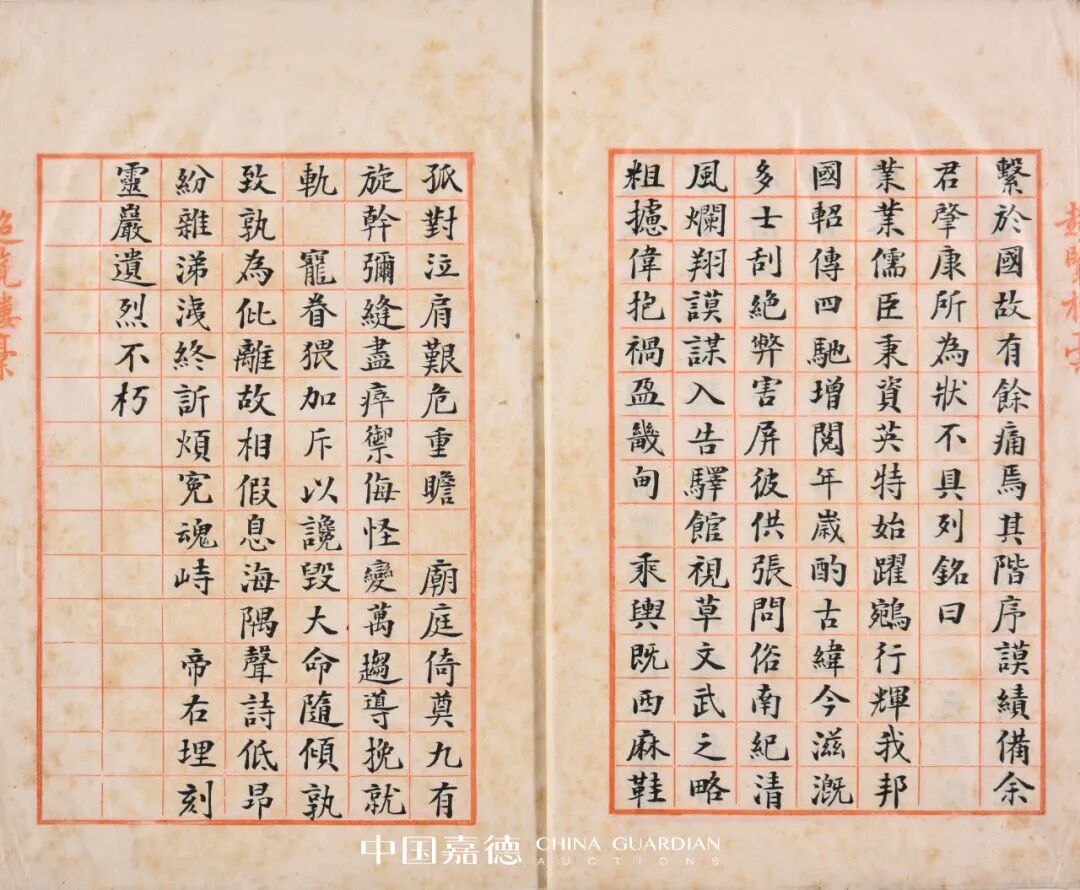 繫於國故有餘痛焉其階序謨績備余
君肇康所為狀不具列銘曰
業業儒臣秉資英特始躍鵷行輝我邦
國軺傳四馳增閱年歲酌古緯今滋溉
多士刮絕弊害屏彼供張問俗南紀清
風爛翔謨謀入告驛館視草文武之略
粗攄偉抱禍盈畿甸 乘輿既西麻鞋
孤對泣肩艱危重瞻 廟庭倚奠九有
旋幹彌縫盡瘁禦侮怪變萬趨導挽就
軌 寵眷猥加斥以讒毀大命隨傾孰
致孰為仳離故相假息海隅聲詩低昂
紛雜涕淚終訢煩冤魂峙 帝右埋刻
靈巖遺烈不朽
超覽樓稾
中国嘉德 CHINA GUARDIAN
AUCTIONS